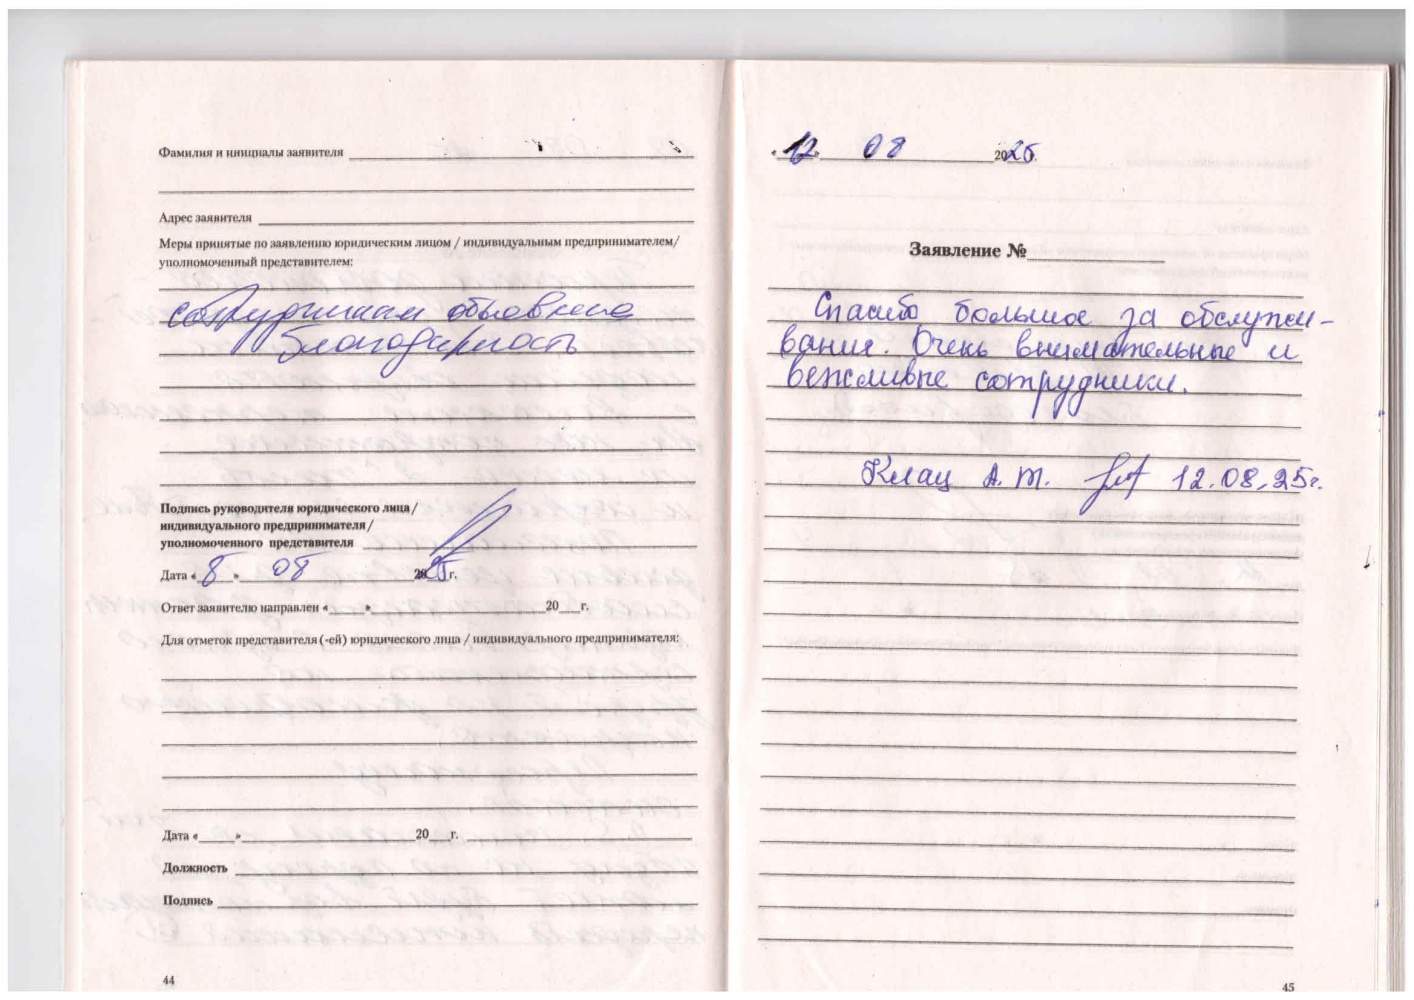 Фамилия и инициалы заявителя
Адрес заявителя
Меры принятые по заявлению юридическим лицом / индивидуальным предпринимателем/
уполномоченный представителем:
сотрудникам объявлена
благодарность
Подпись руководителя юридического лица/
индивидуального предпринимателя/
уполномоченного представителя
Дата « 8 » 08 2025 г.
Ответ заявителю направлен « » 20 г.
Для отметок представителя (-ей) юридического лица / индивидуального предпринимателя:
Дата « » 20 г.
Должность
Подпись
44
« 12 » 08 2025 г.
Заявление №
Спасибо большое за обслужи-
вания. Очень внимательные и
вежливые сотрудники.
Клац А.Т. 12.08.25г.
45